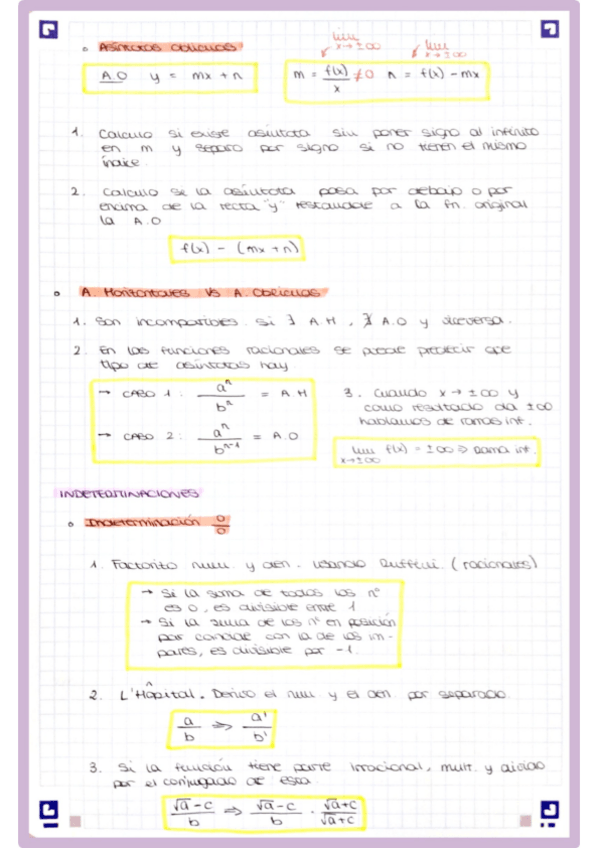 lim x→±∞ lim x→±∞
○ ASÍNTOTAS OBLICUAS
A.O y = mx + n m = f(x)/x ≠0 n = f(x) - mx
1. Calculo si existe asíntota sin poner signo al infinito
en m y separo por signo si no tienen el mismo
índice.
2. Calculo si la asíntota pasa por debajo o por
encima de la recta "y" restandole a la fn. original
la A.O
f(x) - (mx + n)
○ A. Horizontales VS A. Oblicuas
1. Son incompatibles. Si ∃ A.H, ∄ A.O y viceversa.
2. En las funciones racionales se puede predecir que
tipo de asíntotas hay.
→ CASO 1: aⁿ/bⁿ = A.H
→ CASO 2: aⁿ/bⁿ⁻¹ = A.O
3. Cuando x → ±∞ y
como resultado da ±∞
hablamos de ramas inf.
lim x→±∞ f(x) = ±∞ ⇒ Rama inf.
INDETERMINACIONES
○ Indeterminación 0/0
1. Factorizo num. y den. usando Ruffini. (racionales)
→ Si la suma de todos los nº
es 0, es divisible entre 1
→ Si la suma de los nº en posición
par coincide con la de los im-
pares, es divisible por -1.
2. L'Hôpital. Derivo el num y el den. por separado.
a/b ⇒ a'/b'
3. Si la función tiene parte irracional, mult. y divido
por el conjugado de esta.
√a-c/b ⇒ √a-c/b · √a+c/√a+c